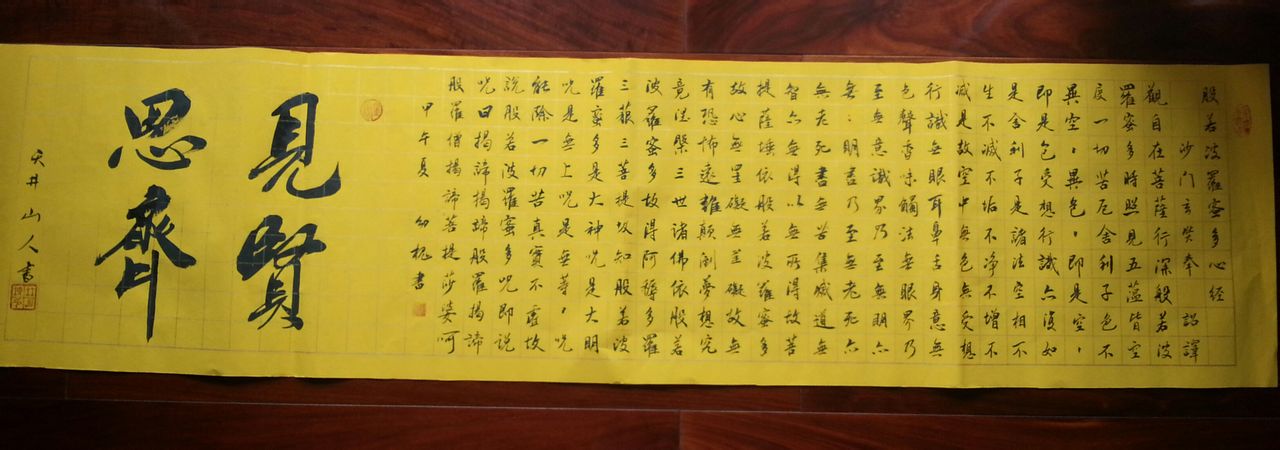 般若波羅蜜多心經
沙門玄奘奉 詔譯
觀自在菩薩行深般若波
羅蜜多時照見五蘊皆空
度一切苦厄舍利子色不
異空、異色、即是空、
即是色受想行識亦復如
是舍利子是諸法空相不
生不滅不垢不淨不增不
减是故空中無色無受想
行識無眼耳鼻舌身意無
色聲香味觸法無眼界乃
至無意識界乃至無明亦
無、明盡乃至無老死亦
無老死盡無苦集滅道無
智亦無得以無所得故菩
提薩埵依般若波羅蜜多
故心無罣礙無罣礙故無
有恐怖遠離顛倒夢想究
竟涅槃三世諸佛依般若
波羅蜜多故得阿耨多羅
三藐三菩提故知般若波
羅蜜多是大神咒是大明
咒是無上咒是無等、咒
能除一切苦真實不虛故
說般若波羅蜜多咒即說
咒曰揭諦揭諦般羅揭諦
般羅僧揭諦菩提莎婆呵
甲午夏 書
見賢
思齊
天井山人書